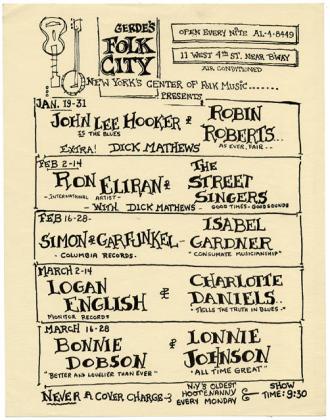 GERDE'S
FOLK
CITY
OPEN EVERY NITE AL-4-8449
11 WEST 4TH ST. NEAR B'WAY
AIR CONDITIONED
NEW YORK'S CENTER OF FOLK MUSIC.......
PRESENTS
JAN. 19-31
JOHN LEE HOOKER & ROBIN ROBERTS..
IS THE BLUES
AS EVER, FAIR..
EXTRA! DICK MATHEWS
FEB 2-14
RON ELIRAN & THE STREET SINGERS
-INTERNATIONAL ARTIST-
GOOD TIMES - GOOD SOUNDS
-WITH DICK MATHEWS-
FEB 16-28-
SIMON & GARFUNKEL- ISABEL GARDNER
- COLUMBIA RECORDS-
"CONSUMATE MUSICIANSHIP"
MARCH 2-14
LOGAN ENGLISH & CHARLOTTE DANIELS..
MONITOR RECORDS
"TELLS THE TRUTH IN BLUES.."
MARCH 16-28
BONNIE DOBSON & LONNIE JOHNSON
"BETTER AND LOVELIER THAN EVER"
"ALL TIME GREAT"
NEVER A COVER CHARGE-
N.Y'S OLDEST HOOTENANNY EVERY MONDAY
& SHOW TIME: 9:30